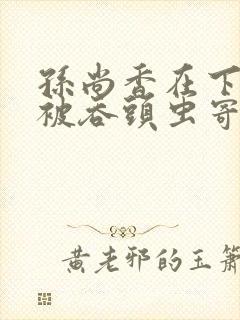 孫尚香在下
被吞頭虫寄
黄老邪的玉簫